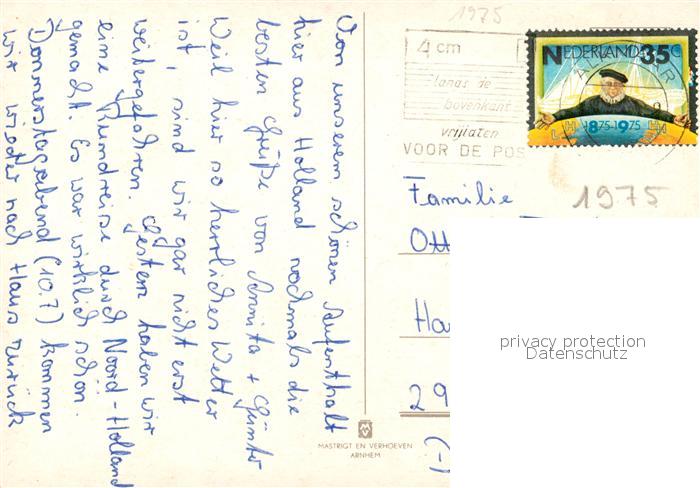 Von unserem schönen Aufenthalt
hier aus Holland nochmals die
besten Grüße von Annita + Günter
Weil hier so herrliches Wetter
ist, sind wir gar nicht erst
weitergefahren. Gestern haben wir
eine Rundreise durch Noord-Holland
gemacht. Es war wirklich schön.
Donnerstagabend (10.7) kommen
wir wieder nach Haus zurück
1975
4 cm
langs de
bovenkant
vrijlaten
VOOR DE POS
NEDERLAND 35 C
1875-1975
Familie
1975
Ott
Ha
29
(-)
privacy protection
Datenschutz
MASTRIGT EN VERHOEVEN
ARNHEM